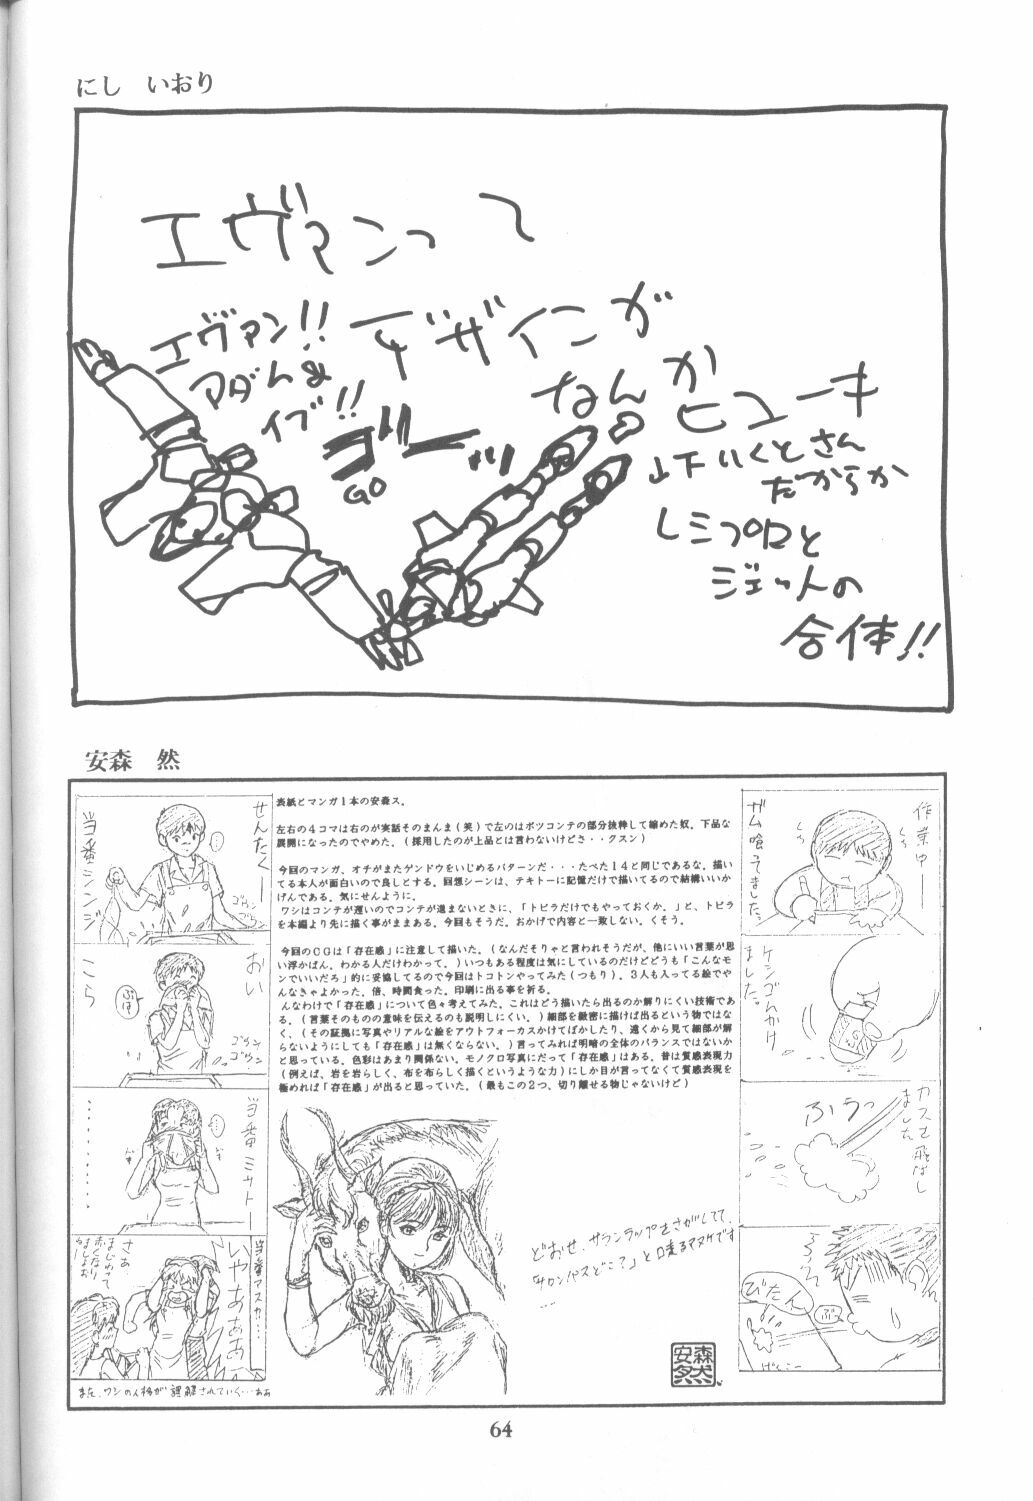 にし　いおり
エヴァンって
デザインが
なんか
ヒューキ
山下いくとさん
だからか
レシプロと
ジェットの
合体!!
エヴァン!!
アダム&
イブ!!
ゴーッ
GO
安森　然
表紙とマンガ1本の安森ス。
左右の4コマは右のが実話そのまんま(笑)で左のはボツコンテの部分抜粋して縮めた奴。下品な
展開になったのでやめた。(採用したのが上品とは言わないけどさ・・クスン)
今回のマンガ、オチがまたゲンドウをいじめるパターンだ・・・たべた14と同じであるな。描い
てる本人が面白いので良しとする。回想シーンは、テキトーに記憶だけで描いてるので結構いいか
げんである。気にせんように。
ワシはコンテが遅いのでコンテが進まないときに、「トビラだけでもやっておくか。」と、トビラ
を本編より先に描く事がままある。今回もそうだ。おかげで内容と一致しない。くそう。
今回のCGは「存在感」に注意して描いた。(なんだそりゃと言われそうだが、他にいい言葉が思
い浮かばん。わかる人だけわかって。)いつもある程度は気にしているのだけどどうも「こんなモ
ンでいいだろ」的に妥協してるので今回はトコトンやってみた(つもり)。3人も入ってる絵でや
んなきゃよかった。倍、時間食った。印刷に出る事を祈る。
んなわけで「存在感」について色々考えてみた。これはどう描いたら出るのか解りにくい技術であ
る。(言葉そのものの意味を伝えるのも説明しにくい。)細部を緻密に描けば出るという物ではな
く、(その証拠に写真やリアルな絵をアウトフォーカスかけてぼかしたり、遠くから見て細部が解
らないようにしても「存在感」は無くならない。)言ってみれば明暗の全体のバランスではないか
と思っている。色彩はあまり関係ない。モノクロ写真にだって「存在感」はある。昔は質感表現力
(例えば、岩を岩らしく、布を布らしく描くというような力)にしか目が言ってなくて質感表現を
極めれば「存在感」が出ると思っていた。(最もこの2つ、切り離せる物じゃないけど)
作業中
ガム喰ってました。
ケシゴムかけ
ました。
カスを飛ばし
ました
ふうっ
ふうっ
ぷっ
びたん
げんこー
せんたくー
当番シンジ
ゴウン
ゴウン
おい
こら
ゴウン
ゴウン
当番ミサトー
・・・・・・・・
当番アスカ…
いやあぁぁ
さあ
まじわって
赤くなり
ましょお
また、ワシの人格が誤解されていく…ああ
どおせ、サランラップをさがしてて、
「サロンパスどこ？」と口走るマヌケです
…
安森然
64